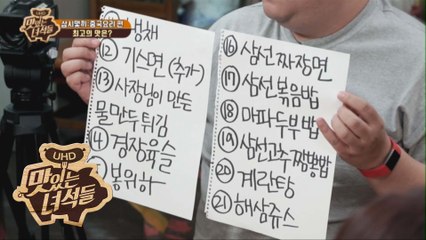 맛있는 녀석들
삼시몇끼: 중국요리 편
최고의 맛은?
⑫ 기스면 (추가)
⑬ 사장님이 만든
물만두튀김
⑭ 경장육슬
⑮ 봉위하
⑯ 삼선짜장면
⑰ 삼선볶음밥
⑱ 마파두부밥
⑲ 삼선고추짬뽕밥
⑳ 계란탕
㉑ 해삼쥬스
UHD
맛있는
녀석들